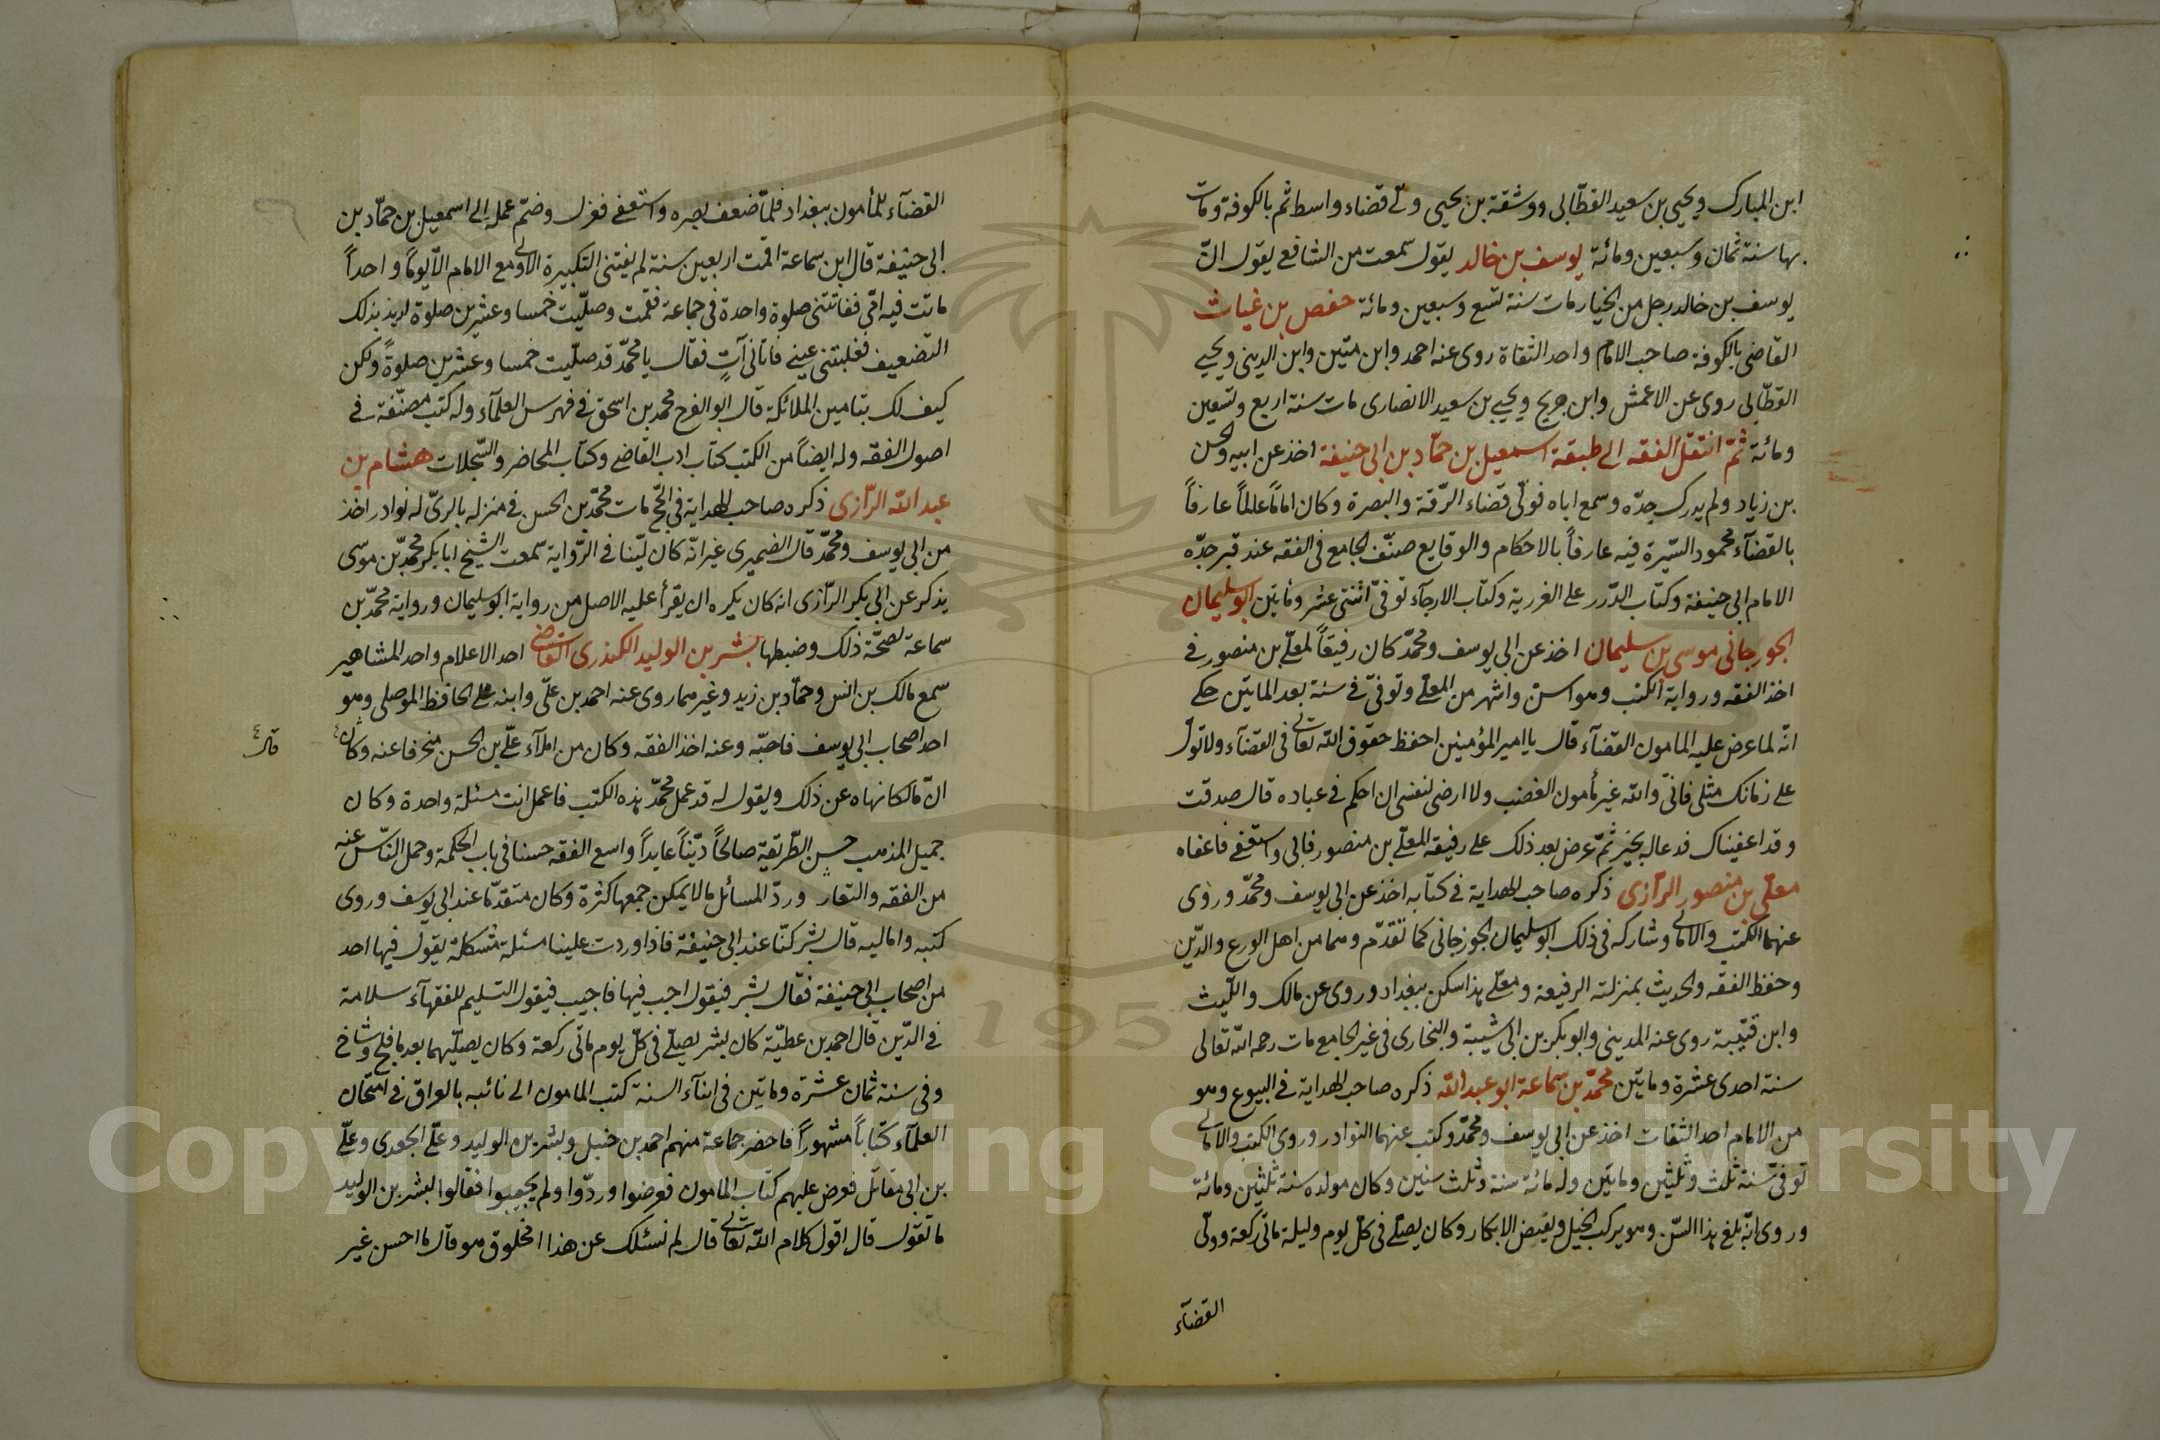 ابن المبارك ويحيى بن سعيد القطّاني ووشقة بن يحيى ولّى قضاء واسط ثم بالكوفة ومات
بها سنة ثمان وسبعين ومائة يوسف بن خالد يقول سمعت من الشافعى يقول انّ
يوسف بن خالد رجل من الخيار مات سنة تسع وسبعين ومائة حفص بن غياث
القاضى بالكوفة صاحب الامام واحد الثقاة روى عنه احمد وابن متين وابن الدينى ويحيى
القطّانى روى عن الاعمش وابن جريج ويحيى بن سعيد الانصارى مات سنة اربع وتسعين
ومائة ثمّ انتقل الفقه الى طبقة اسمعيل بن حمّاد بن ابى حنيفة اخذ عن ابيه والحسن
بن زياد ولم يدرك جدّه وسمع اباه فولّى قضاء الرّقة والبصرة وكان اماماً عالماً عارفاً
بالقضآء محمود السّيرة فيه عارفاً بالاحكام والوقايع صنّف الجامع فى الفقه عند قبر جدّه
الامام ابى حنيفة وكتاب الدّرر على الغررية وكتاب الارجآء توفّى اثنتى عشر ومأتين ابو سليمان
الجورجانى موسى بن سليمان اخذ عن ابى يوسف ومحمّد كان رفيقاً لمعلّى بن منصور فى
اخذ الفقه ورواية الكتب وهو اسنّ واشهر من المعلّى وتوفّى فى سنة بعد المايتين حكى
انّه لما عرض عليه المامون القضآء قال يا امير المؤمنين احفظ حقوق الله تعالى فى القضآء ولا تول
على زمانك مثلى فانّى والله غير مأمون الغضب ولا ارضى لنفسى ان احكم فى عباده قال صدقت
وقد اعفيناك فدعا له بخير ثمّ عرض بعد ذلك على رفيقه المعلّى بن منصور فابى واستعفى فاعفاه
معلّى بن منصور الرّازى ذكره صاحب الهداية فى كتابه اخذ عن ابى يوسف ومحمّد وروى
عنهما الكتب والامالى وشاركه فى ذلك ابو سليمان الجوزجانى كما تقدّم وهما من اهل الورع والدّين
وحفظ الفقه والحديث بمنزلته الرفيعة ومعلّى هذا سكن ببغداد وروى عن مالك واللّيث
وابن قتيبة روى عنه المدينى وابو بكر بن ابى شيبة والبخارى فى غير الجامع مات رحمه الله تعالى
سنة احدى عشرة ومايتين محمّد بن سماعة ابو عبد الله ذكره صاحب الهداية فى البيوع وهو
من الامام احد الثقات اخذ عن ابى يوسف ومحمّد وكتب عنهما النوادر وروى الكتب والامالى
توفّى سنة ثلث وثلثين ومايتين وله مائة سنة وثلث سنين وكان مولده سنة ثلثين ومائة
وروى انّه بلغ هذا السّن وهو يركب الخيل ويفتض الابكار وكان يصلّى فى كلّ يوم وليلة مأتى ركعة وولّى
القضآء
القضآء للمأمون ببغداد فلمّا ضعف بصره واستعفى فعزل وضمّ عمله الى اسمعيل بن حمّاد بن
ابى حنيفة قال ابن سماعة اقمت اربعين سنة لم يفتنى التكبيرة الاولى مع الامام الّا يوماً واحداً
ماتت فيه امّى ففاتتنى صلوة واحدة فى جماعة فقمت وصلّيت خمسا وعشرين صلوة اريد بذلك
التضعيف فغلبتنى عينى فاتانى آتٍ فقال يا محمّد قد صلّيت خمسا وعشرين صلوةً ولكن
كيف لك بتامين الملائكة قال ابو الفرج محمد بن اسحق فى فهرس العلمآء وله كتب مصنّفة فى
اصول الفقه وله ايضاً من الكتب كتاب ادب القاضى وكتاب المحاضر والسّجلات هشام بن
عبد الله الرّازى ذكره صاحب الهداية فى الحّج مات محمّد بن الحسن فى منزله بالرىّ له نوادر اخذ
من ابى يوسف ومحمّد قال الضميرى غير انّه كان ليّنا فى الرّواية سمعت الشيخ ابا بكر محمّد بن موسى
يذكر عن ابى بكر الرّازى انه كان يكره ان يقرأ عليه الاصل من رواية ابو سليمان ورواية محمّد بن
سماعة لصحّة ذلك وضبطها بشر بن الوليد الكندرى القاضى احد الاعلام واحد المشاهير
سمع مالك بن انس وحمّاد بن زيد وغيرهما روى عنه احمد بن علّى وابنه على الحافظ الموصلى وهو
احد اصحاب ابى يوسف فاحبّه وعنه اخذ الفقه وكان من املآء علّى بن الحسن منحرفا عنه وكان
قال
انّ مالكا نهاه عن ذلك ويقول له قد عمل محمّد هذه الكتب فاعمل انت مسئلة واحدة وكان
جميل المذهب حسن الطّريقة صالحاً ديّناً عابداً واسع الفقه حسنا فى باب الحكمة وحمل النّاس عنه
من الفقه والنوادر وردّ المسائل ما لا يمكن جمعها كثرة وكان متقدّما عند ابى يوسف وروى
كتبه واماليه قال بشر كنّا عند ابى حنيفة فاذا وردت علينا مسئلة مشكلة يقول فيها احد
من اصحاب ابى حنيفة فقال بشر فيقول اجب فيها فاجيب فيقول التسليم للفقهآء سلامة
فى الدّين قال احمد بن عطيّة كان بشر يصلّى فى كلّ يوم مأتى ركعة وكان يصلّيهما بعد ما فلج وشاخ
وفى سنة ثمان عشرة ومايتين فى اثنآء السنة كتب المامون الى نائبه بالعراق فى امتحان
العلمآء كتاباً مشهوراً فاحضر جماعة منهم احمد بن حنبل وبشر بن الوليد وعلّى الجعدى وعلّى
بن ابى مقاتل فعرض عليهم كتاب المامون فعرضوا وردّوا ولم يجيبوا فقالوا لبشر بن الوليد
ما تقول قال اقول كلام الله تعالى قال لم نسئلك عن هذا امخلوق هو قال ما احسن غير